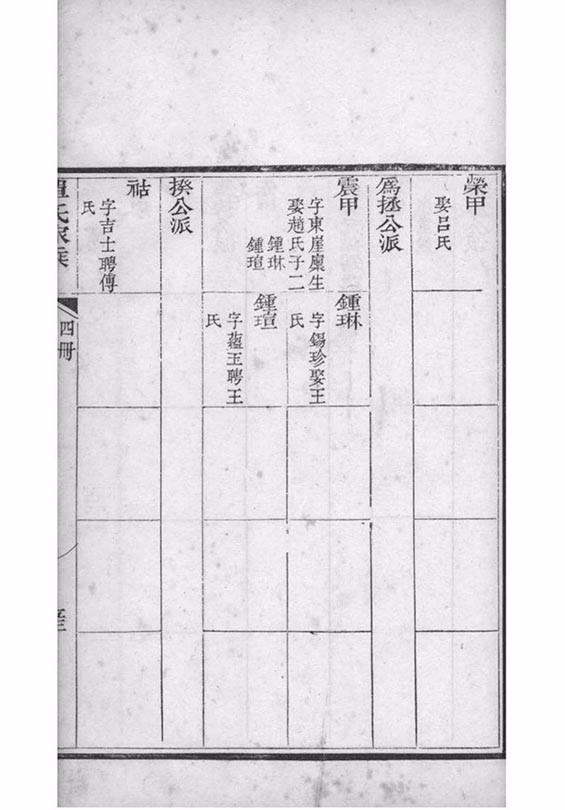 榮甲
娶呂氏
爲拯公派
震甲
字東崖廩生
娶趙氏子二
鍾琳
鍾瑄
鍾琳
字錫珍娶王
氏
鍾瑄
字蘊玉聘王
氏
揆公派
祜
字吉士聘傅
氏
氏家乘
四冊